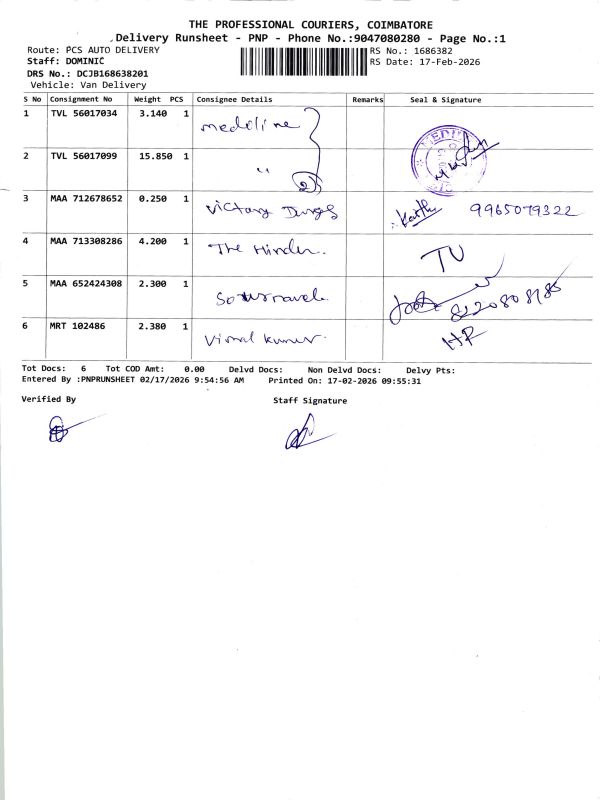 THE PROFESSIONAL COURIERS, COIMBATORE
Delivery Runsheet - PNP - Phone No.:9047080280 - Page No.:1
Route: PCS AUTO DELIVERY RS No.: 1686382
Staff: DOMINIC RS Date: 17-Feb-2026
DRS No.: DCJB168638201
Vehicle: Van Delivery
S No Consignment No Weight PCS Consignee Details Remarks Seal & Signature
1 TVL 56017034 3.140 1 medoline
2 TVL 56017099 15.850 1 " 2
3 MAA 712678652 0.250 1 Victory 9965079322
4 MAA 713308286 4.200 1 The Hindu. TV
5 MAA 652424308 2.300 1
6 MRT 102486 2.380 1 Vimal Kumar. HR
Tot Docs: 6 Tot COD Amt: 0.00 Delvd Docs: Non Delvd Docs: Delvy Pts:
Entered By :PNPRUNSHEET 02/17/2026 9:54:56 AM Printed On: 17-02-2026 09:55:31
Verified By Staff Signature